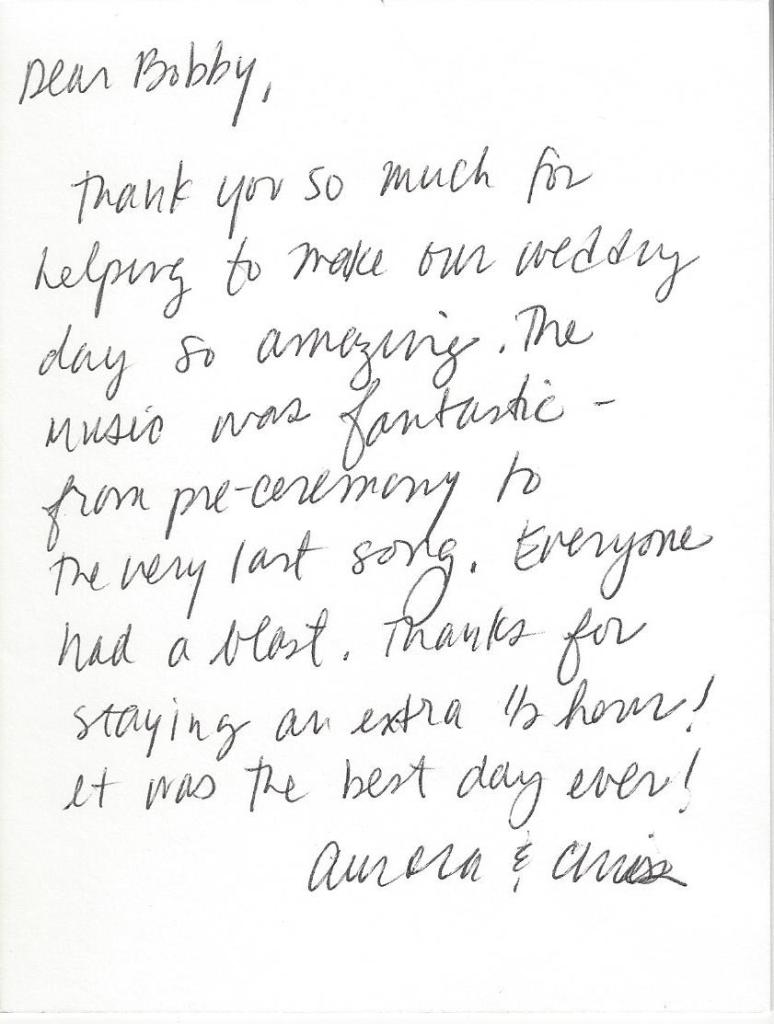 Dear Bobby,
Thank you so much for
helping to make our wedding
day so amazing. The
music was fantastic -
from pre-ceremony to
the very last song. Everyone
had a blast. Thanks for
staying an extra 1/2 hour!
It was the best day ever!
Aurora & Chris